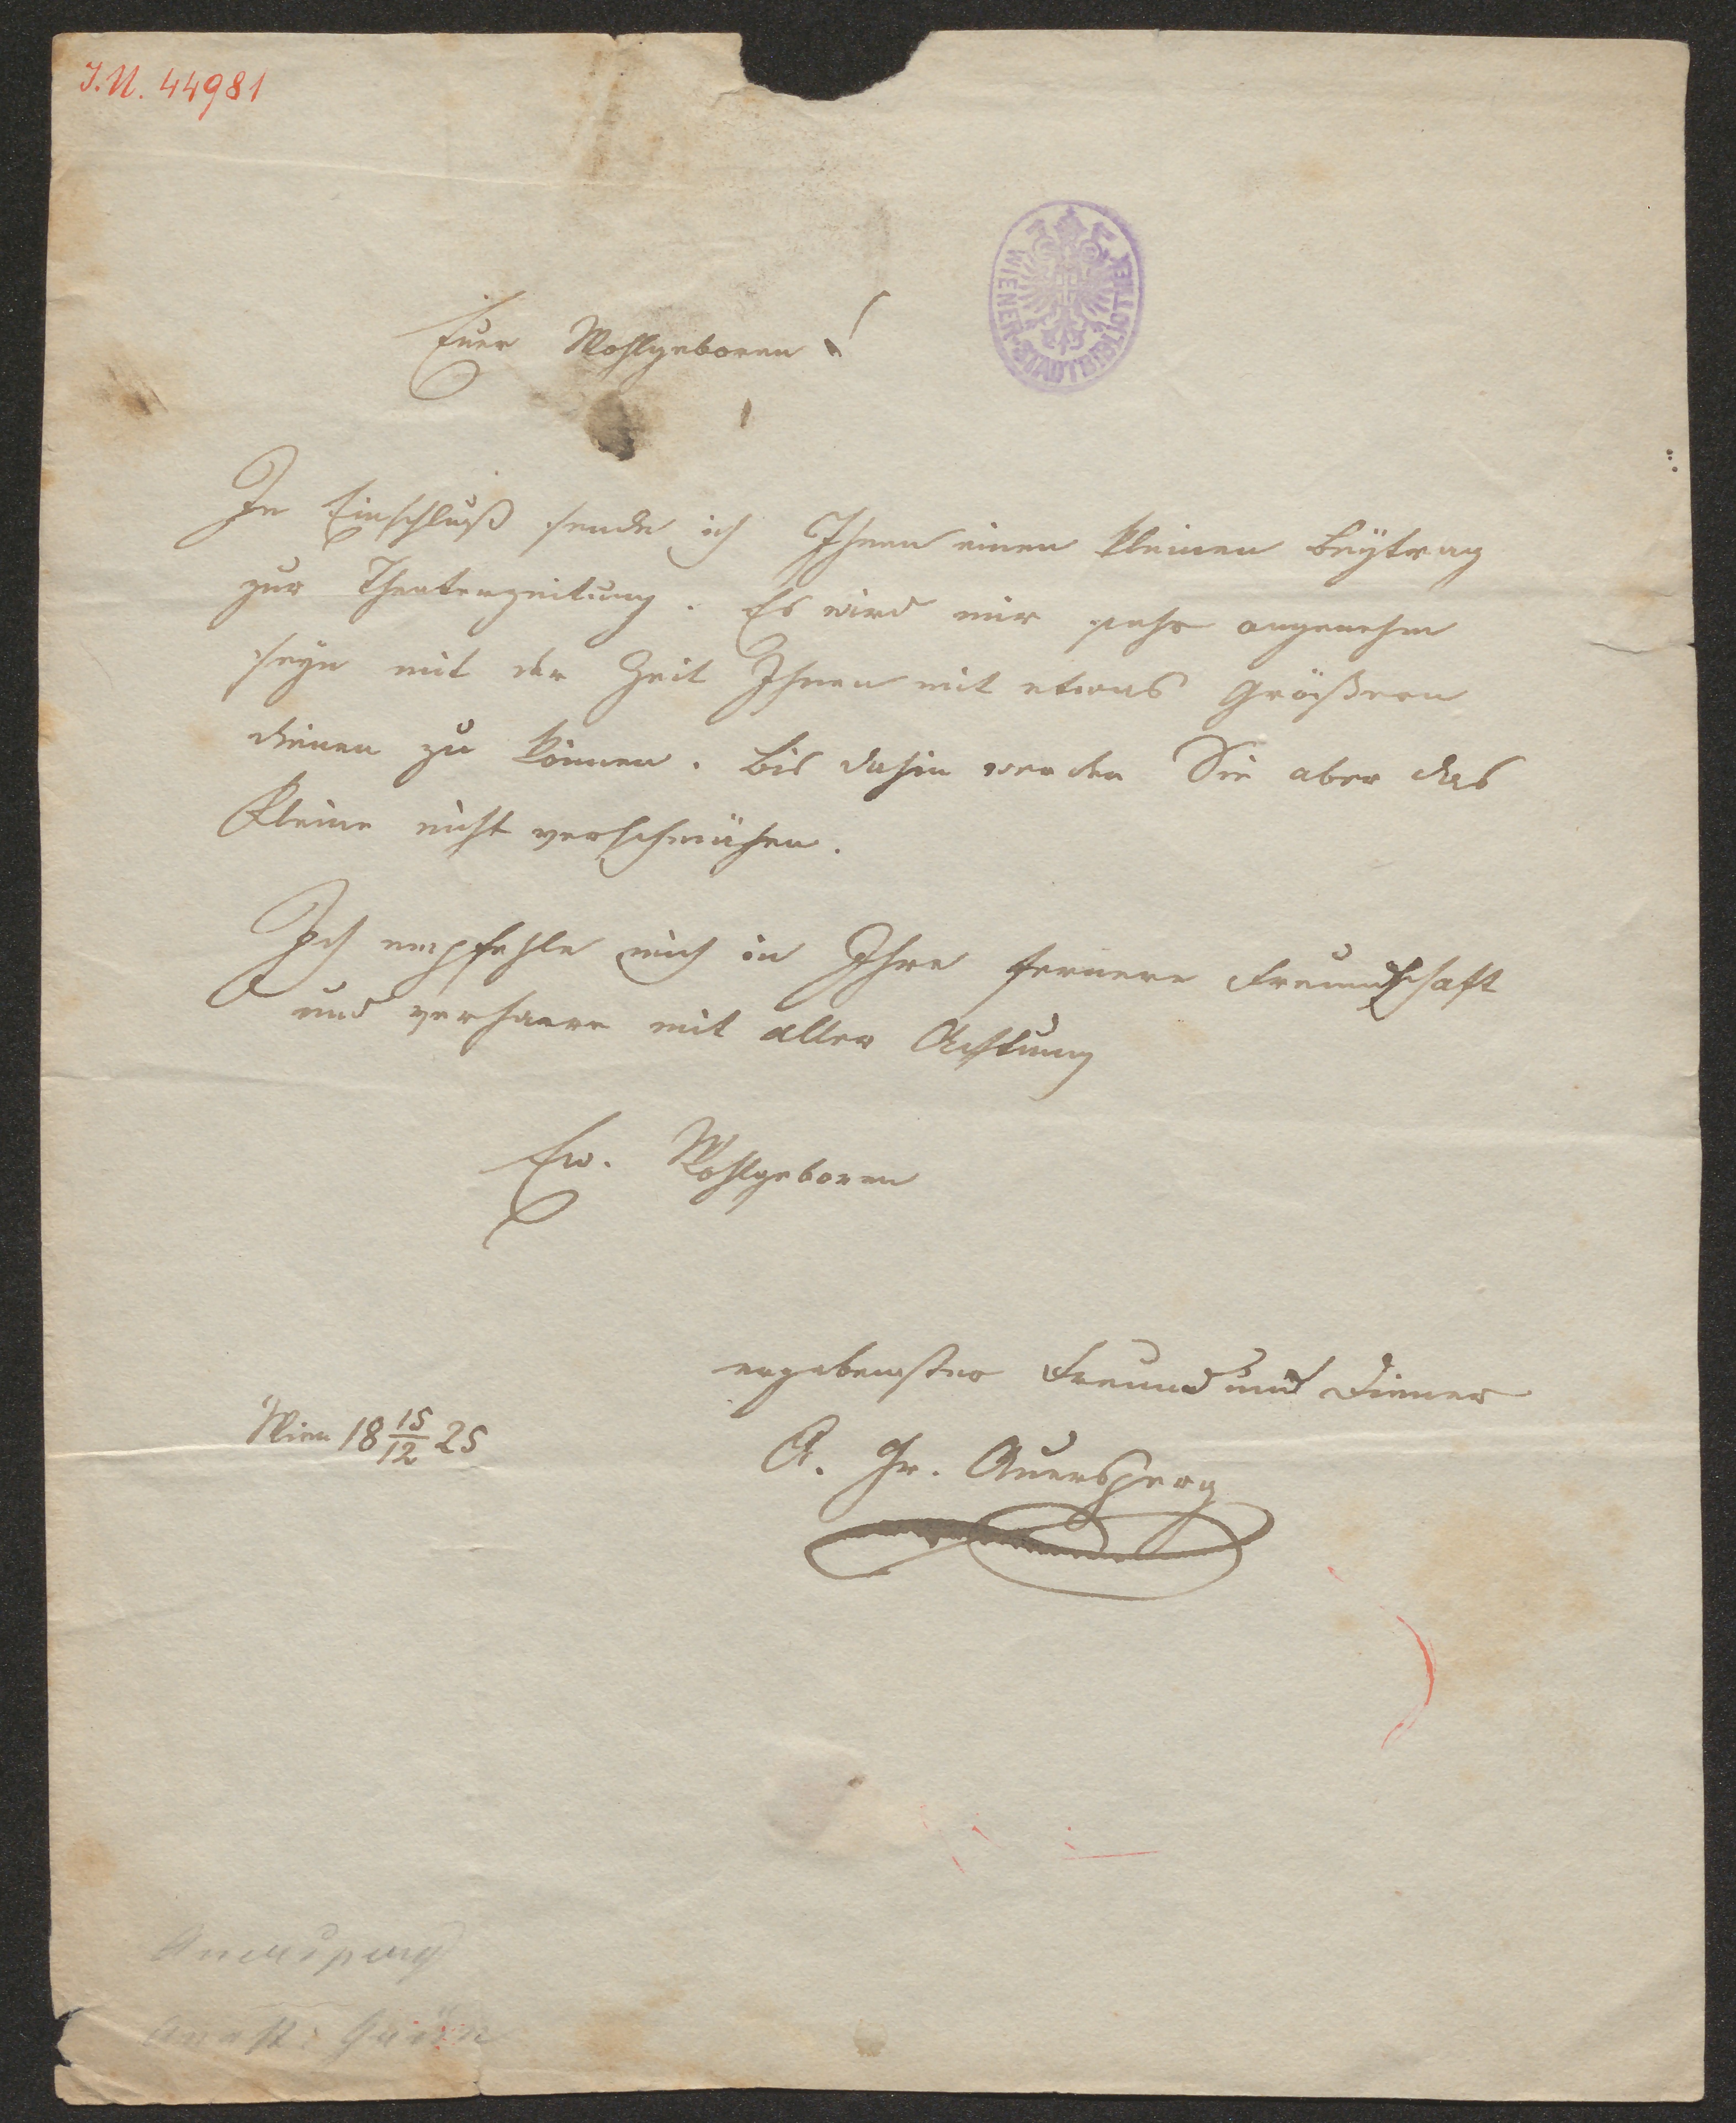 I.N. 44981
WIENER STADTBIBLIOTHEK
Euer Wohlgeboren!
Im Einschluß sende ich Ihnen einen kleinen Beÿtrag
zur Theaterzeitung. Es wird mir sehr angenehm
seyn mit der Zeit Ihnen mit etwas Größeren
dienen zu können. Bis dahin werden Sie aber das
Kleine nicht verschmähen.
Ich empfehle mich in Ihre fernere Freundschaft
und verharre mit aller Achtung
Ew. Wohlgeboren
ergebenster Freund und Diener
Wien 18 15/12 25
A. Gr. Auersperg
Auersperg
Anast. Grün